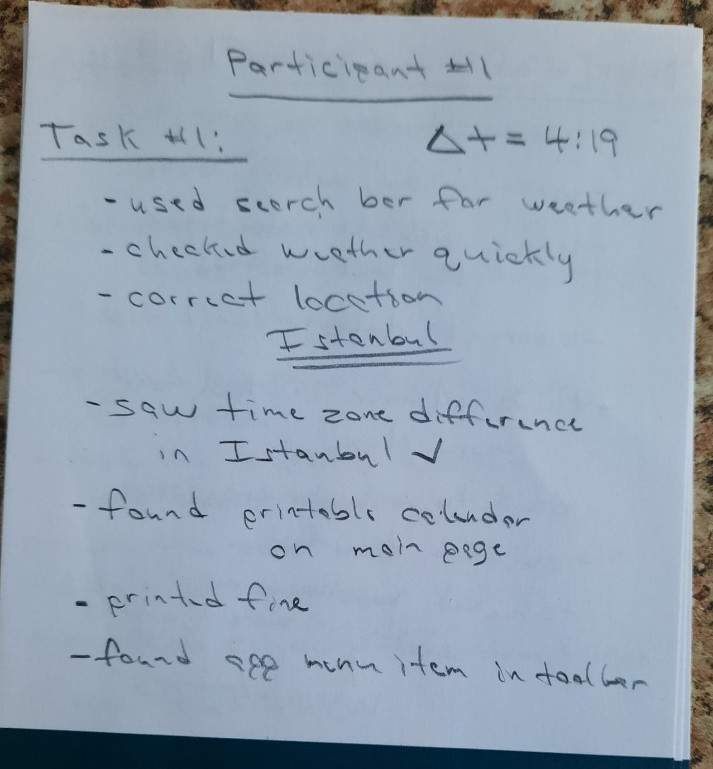 Participant #1
Task #1: Δt = 4:19
- used search bar for weather
- checked weather quickly
- correct location
Istanbul
- saw time zone difference
in Istanbul ✓
- found printable calendar
on main page
- printed fine
- found app menu item in toolbar